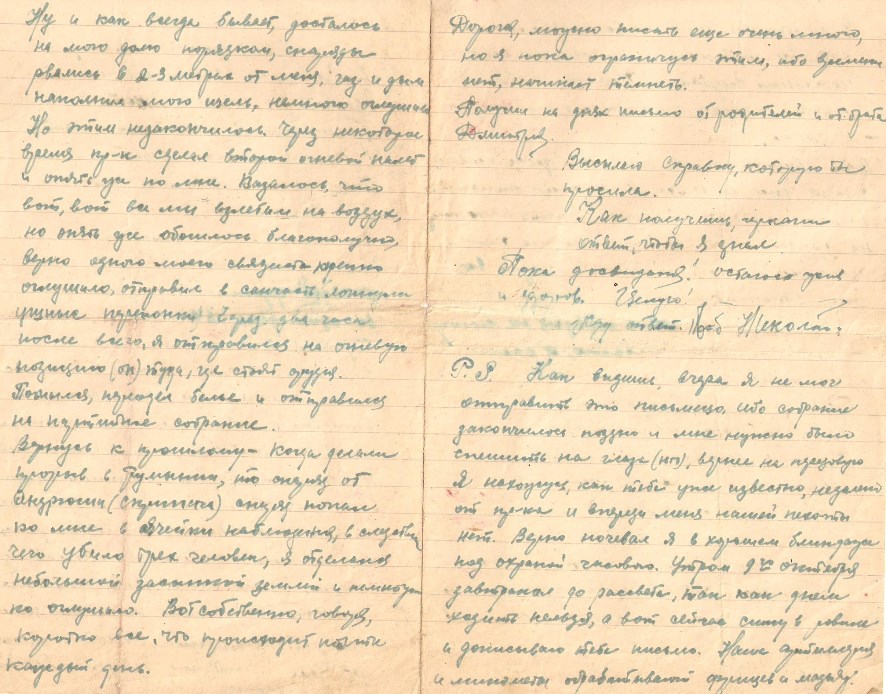 Ну и как всегда бывает, досталось
на мою долю порядком, снаряды
рвались в 2-3 метрах от меня, газ и дым
наполнили мою щель, немного оглушило
Но этим незакончилось. Через некоторое
время пр-к сделал второй огневой налет
и опять уже по мне. Казалось, что
вот, вот все мы взлетим на воздух,
но опять уже обошлось благополучно,
верно одного моего связиста крепко
оглушило, отправил в санчасть лопнули
ушные перепонки. Через два часа
после всего, я отправился на огневую
позицию (оп) туда, где стоят орудия.
Помылся, переодел белье и отправился
на партийное собрание.
Вернусь к прошлому - когда делали
прорыв в Румынии, то снаряд от
Андрюши (скрипача) снаряд попал
ко мне в ячейки наблюдения, в следствии
чего убило трех человек, я отделался
небольшой засыпкой землей и немного
оглушило. Вот собственно, говоря,
коротко все, что происходит почти
каждый день.
Дорогая, можно писать еще очень много,
но я пока ограничусь этим, ибо времени
нет, начинает темнеть.
Получил на днях письмо от родителей и от брата
Дмитрия.
Высылаю справку, которую ты
просила.
Как получишь, черкани
ответ, чтобы я знал
Пока досвидания! остаюсь жив
и здоров. Целую!
Жду ответ. Твой Николай
P. S. Как видишь, вчера я не мог
отправить это письмецо, ибо собрание
закончилось поздно и мне нужно было
спешить на (нп), вернее на передовую
Я нахожусь, как тебе уже известно, недалеко
от пр-ка и впереди меня нашей пехоты
нет. Верно ночевал я в хорошем блиндаже
под охраной часового. Утром 9го октября
завтракал до рассвета, так как днем
ходить нельзя, а вот сейчас сижу в ровике
и дописываю тебе письмо. Наша артиллерия
и минометы обрабатывают фрицев и мадьяр.